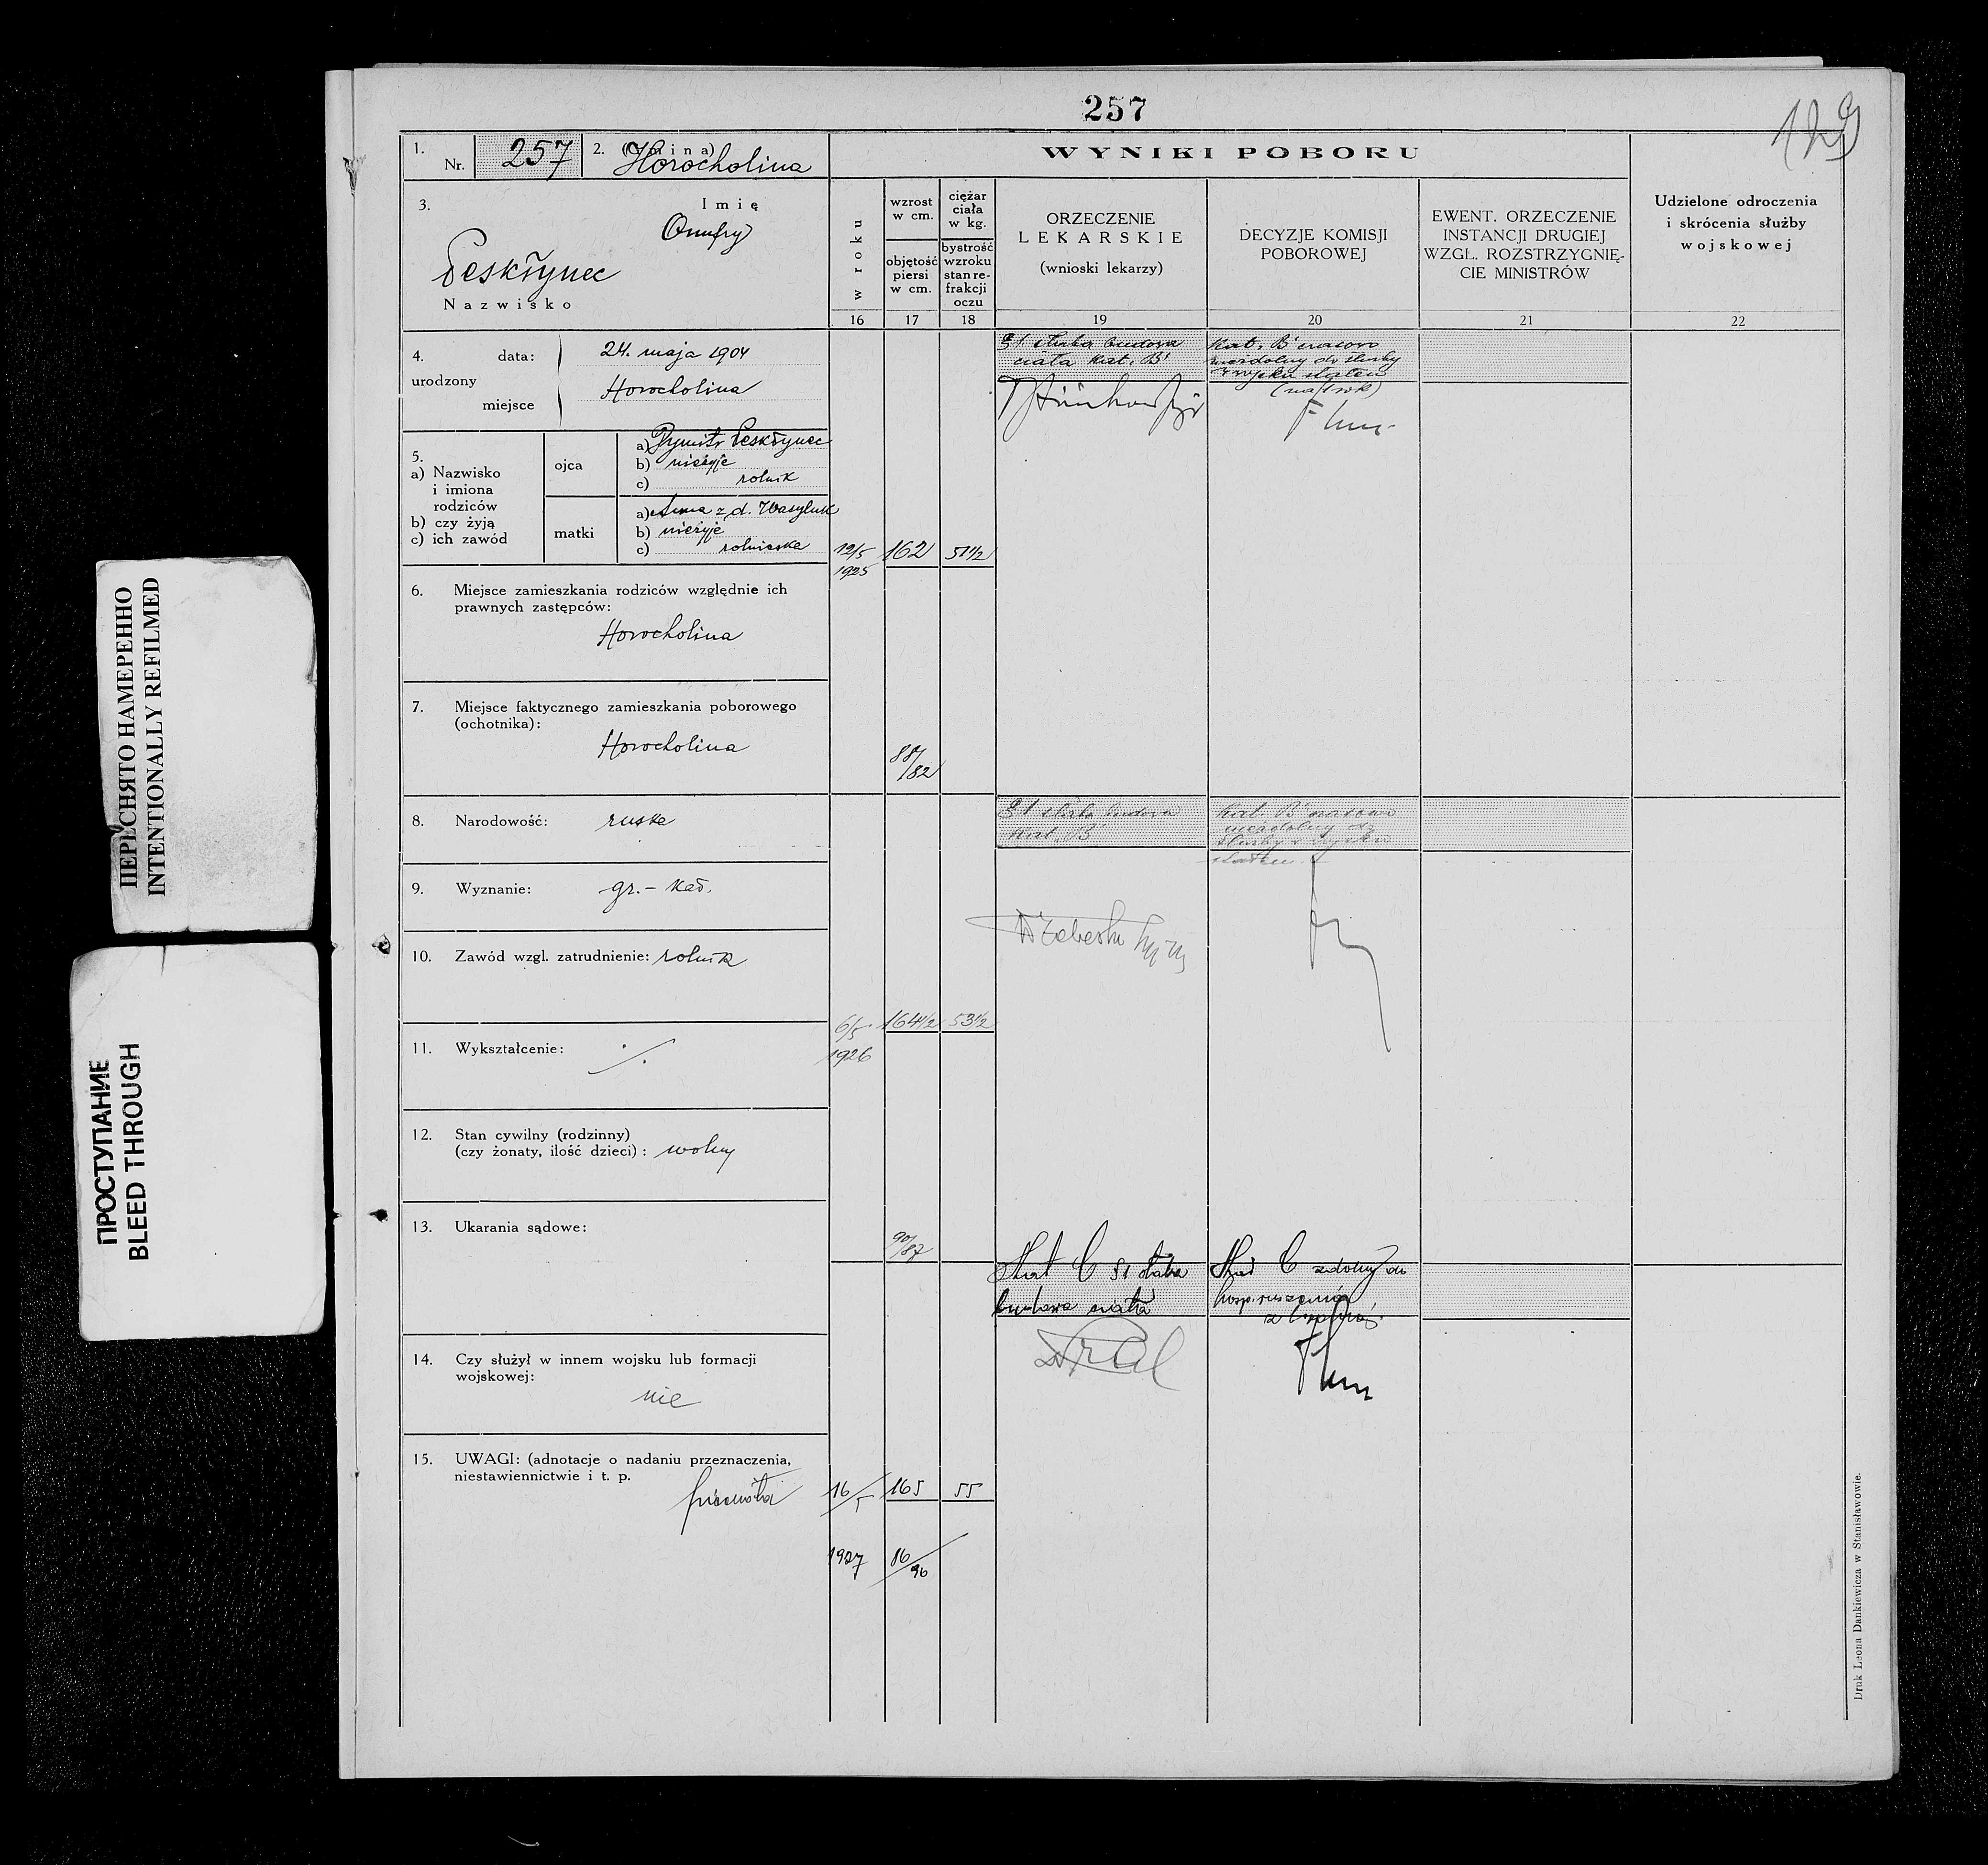 257
129
1.
Nr. 257
2. (Gmina)
Horocholina
3.
Imię
Onufry
Peskłynec
Nazwisko
4. data: 24. maja 1904
urodzony
miejsce Horocholina
5.
a) Nazwisko
i imiona
rodziców
b) czy żyją
c) ich zawód
ojca
a) Dymitr Peskłynec
b) nieżyje
c) rolnik
matki
a) Anna z d. Wasyluk
b) nieżyje
c) rolniczka
6. Miejsce zamieszkania rodziców względnie ich
prawnych zastępców:
Horocholina
7. Miejsce faktycznego zamieszkania poborowego
(ochotnika):
Horocholina
8. Narodowość: ruska
9. Wyznanie: gr.- kat.
10. Zawód wzgl. zatrudnienie: rolnik
11. Wykształcenie: ./.
12. Stan cywilny (rodzinny)
(czy żonaty, ilość dzieci): wolny
13. Ukarania sądowe:
14. Czy służył w innem wojsku lub formacji
wojskowej:
nie
15. UWAGI: (adnotacje o nadaniu przeznaczenia,
niestawiennictwie i t. p.
WYNIKI POBORU
w roku
16
wzrost
w cm.
objętość
piersi
w cm.
17
ciężar
ciała
w kg.
bystrość
wzroku
stan re-
frakcji
oczu
18
ORZECZENIE
LEKARSKIE
(wnioski lekarzy)
19
DECYZJE KOMISJI
POBOROWEJ
20
EWENT. ORZECZENIE
INSTANCJI DRUGIEJ
WZGL. ROZSTRZYGNIĘ-
CIE MINISTRÓW
21
Udzielone odroczenia
i skrócenia służby
wojskowej
22
12/5
1925
162
51 1/2
88/82
§1 słaba budowa
ciała kat. B'
Kat. B' czasowo
niezdolny do służby
w wojsku stałem
(na 1 rok)
6/5
1926
164 1/2
53 1/2
90/87
§1 słaba budowa
kat. B'
Kat. B' czasowo
niezdolny do
służby w wojsku
stałem
16/5
1927
165
55
86/96
Kat C §1 słaba
budowa ciała
Kat C zdolny do
posp. ruszenia
z bronią
Druk Leona Dankiewicza w Stanisławowie.
ПЕРЕСНЯТО НАМЕРЕННО
INTENTIONALLY REFILMED
ПРОСТУПАНИЕ
BLEED THROUGH